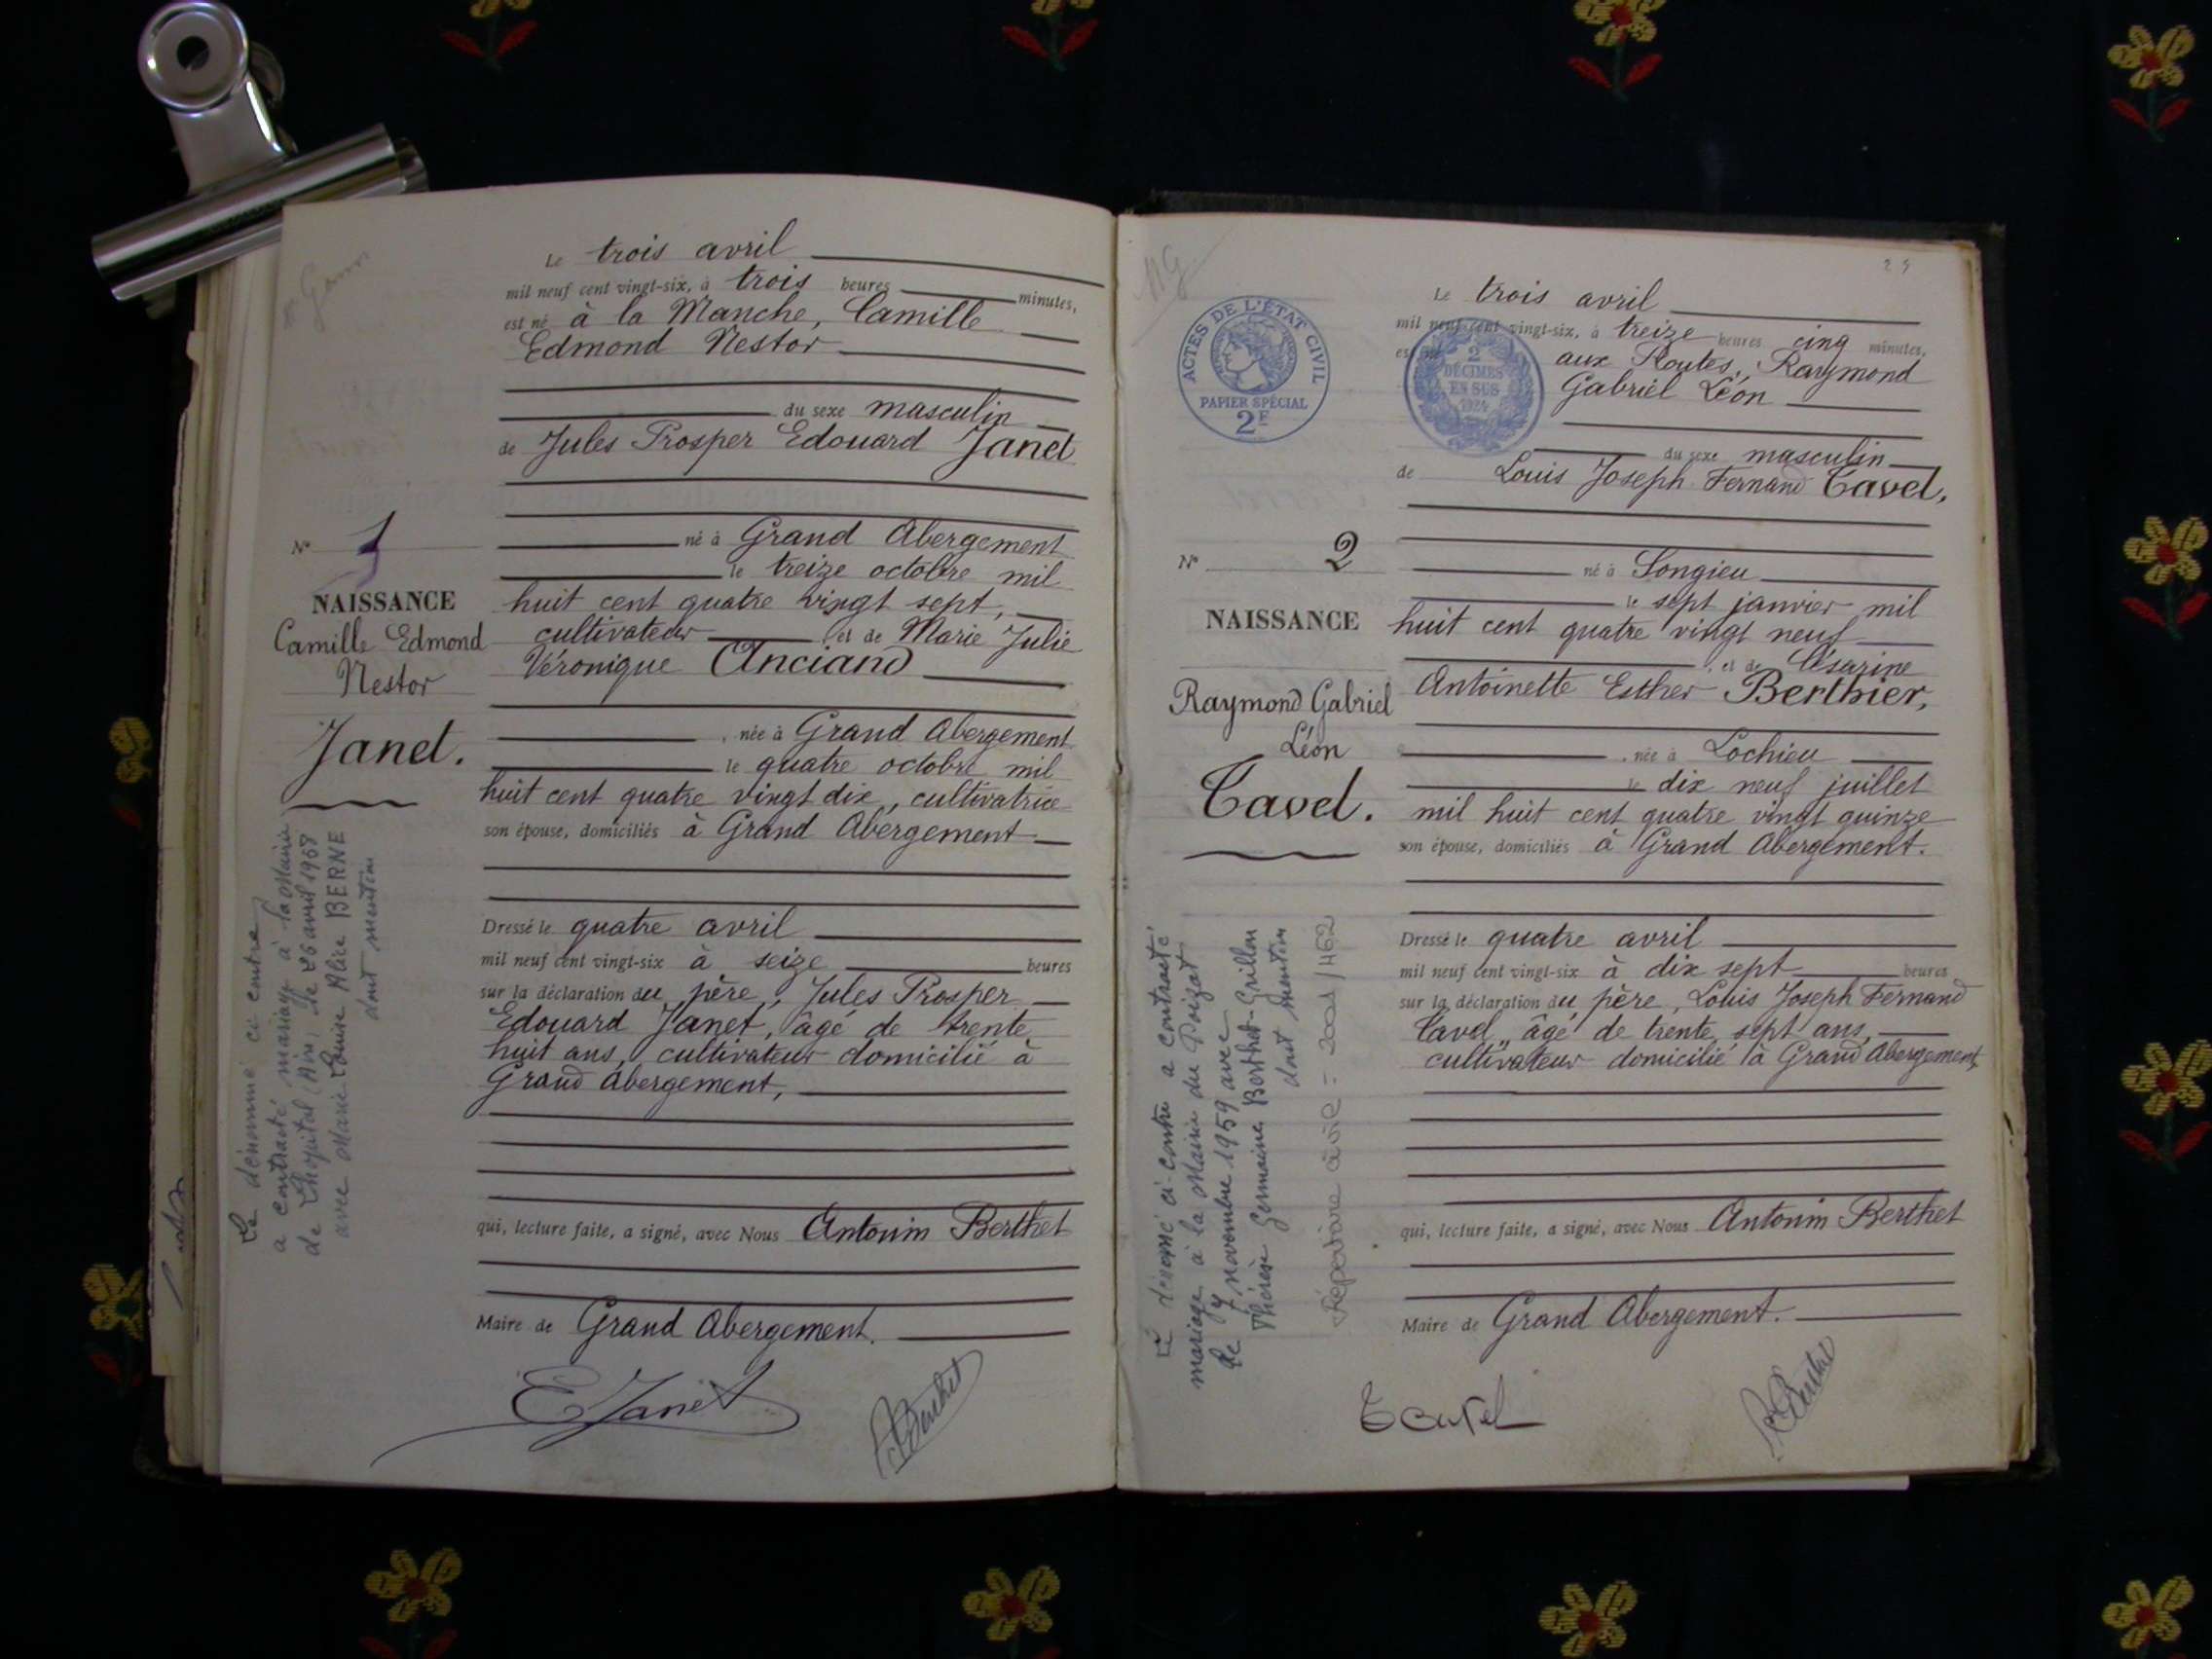 Le trois avril
mil neuf cent vingt-six, à trois heures minutes,
est né à la Manche, Camille
Edmond Nestor
du sexe masculin
de Jules Prosper Edouard Janet
né à Grand Abergement
le treize octobre mil
huit cent quatre vingt sept,
cultivateur et de Marie Julie
Véronique Anciand
, née à Grand Abergement
le quatre octobre mil
huit cent quatre vingt dix, cultivatrice
son épouse, domiciliés à Grand Abergement
Dressé le quatre avril
mil neuf cent vingt-six à seize heures
sur la déclaration du père, Jules Prosper
Edouard Janet, âgé de trente
huit ans, cultivateur domicilié à
Grand Abergement,
qui, lecture faite, a signé, avec Nous Antonin Berthet
Maire de Grand Abergement.
E Janet
Berthet
N° 1
NAISSANCE
Camille Edmond
Nestor
Janet.
Le dénommé ci contre
a contracté mariage à la Mairie
de Lhopital (Ain) le 26 avril 1958
avec Marie Louise Alice BERNE
dont mention
MG
ACTES DE L'ÉTAT CIVIL
PAPIER SPÉCIAL
2F
2
DÉCIMES
EN SUS
1924
N° 2
NAISSANCE
Raymond Gabriel
Léon
Tavel.
Le dénommé ci-contre a contracté
mariage à la Mairie du Poizat
le 7 novembre 1959 avec
Thérèse Germaine Berthet-Grillon
dont mention
Répertoire civil = 2001/462
25
Le trois avril
mil neuf cent vingt-six, à treize heures cinq minutes,
est né aux Routes, Raymond
Gabriel Léon
du sexe masculin
de Louis Joseph Fernand Tavel,
né à Songieu
le sept janvier mil
huit cent quatre vingt neuf
, et de Césarine
Antoinette Esther Berthier,
, née à Lochieu
le dix neuf juillet
mil huit cent quatre vingt quinze
son épouse, domiciliés à Grand Abergement.
Dressé le quatre avril
mil neuf cent vingt-six à dix sept heures
sur la déclaration du père, Louis Joseph Fernand
Tavel, âgé de trente sept ans,
cultivateur domicilié à Grand Abergement,
qui, lecture faite, a signé, avec Nous Antonin Berthet
Maire de Grand Abergement.
Tavel
Berthet